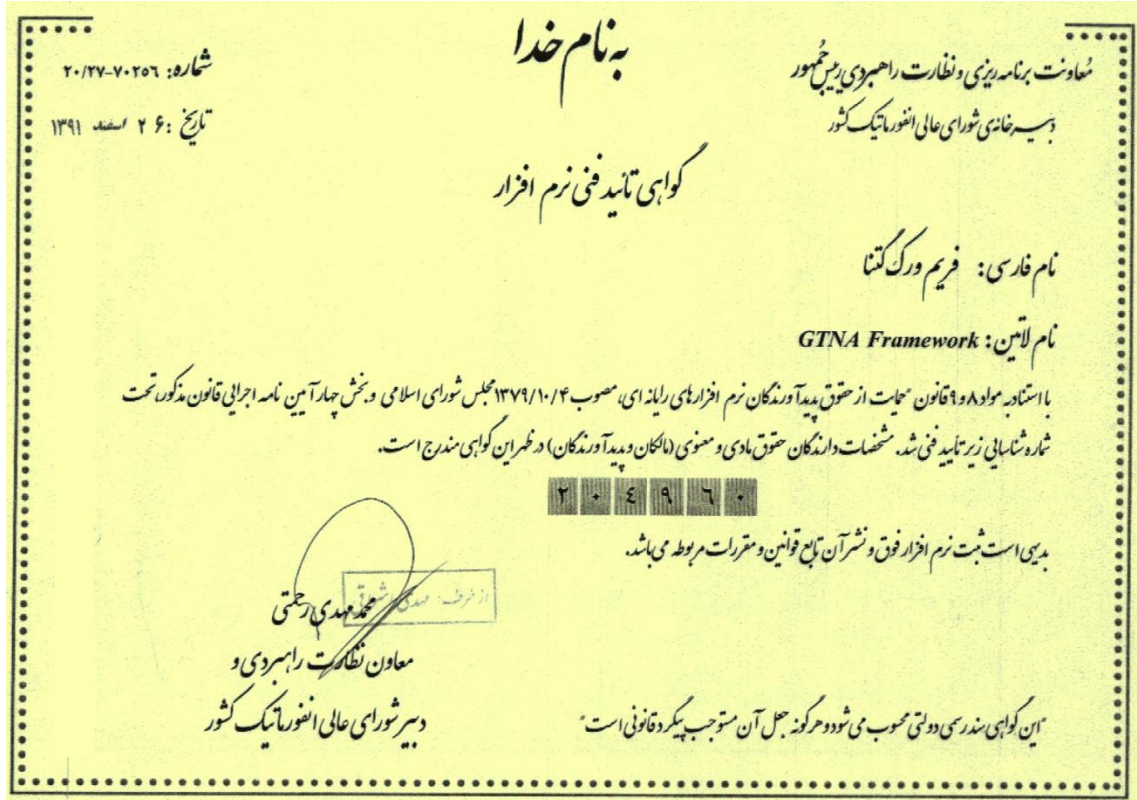 به نام خدا
معاونت برنامه ریزی و نظارت راهبردی رییس جمهور
دبیرخانه‌ی شورای عالی انفورماتیک کشور
شماره: ۲۰/۲۷-۷۰۲۵۶
تاریخ: ۲۶ اسفند ۱۳۹۱
گواهی تائید فنی نرم افزار
نام فارسی: فریم ورک گتنا
نام لاتین: GTNA Framework
با استناد به مواد ۸ و ۹ قانون "حمایت از حقوق پدیدآورندگان نرم افزارهای رایانه ای، مصوب ۱۳۷۹/۱۰/۴ مجلس شورای اسلامی و بخش چهار آیین نامه اجرایی قانون مذکور، تحت
شماره شناسایی زیر تأیید فنی شد. مشخصات دارندگان حقوق مادی و معنوی (مالکان و پدیدآورندگان) در ظهر این گواهی مندرج است.
۲۰۴۹۶۰
بدیهی است ثبت نرم افزار فوق و نشر آن تابع قوانین و مقررات مربوطه می باشد.
از طرف: مهدی
محمد مهدی رحمتی
معاون نظارت راهبردی و
دبیر شورای عالی انفورماتیک کشور
"این گواهی سند رسمی دولتی محسوب می شود و هرگونه جعل آن مستوجب پیگرد قانونی است"